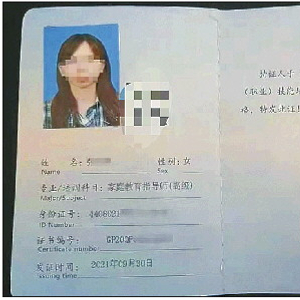 姓 名: 性别: 女
Name Sex
专业/培训科目: 家庭教育指导师(高级)
Major/Subject
身份证号: 4408021
ID Number
证书编号: GP202F
Certificate number
发证时间: 2021年09月20日
Issuing time
持证人于
(职业)技能培
格,特发此证